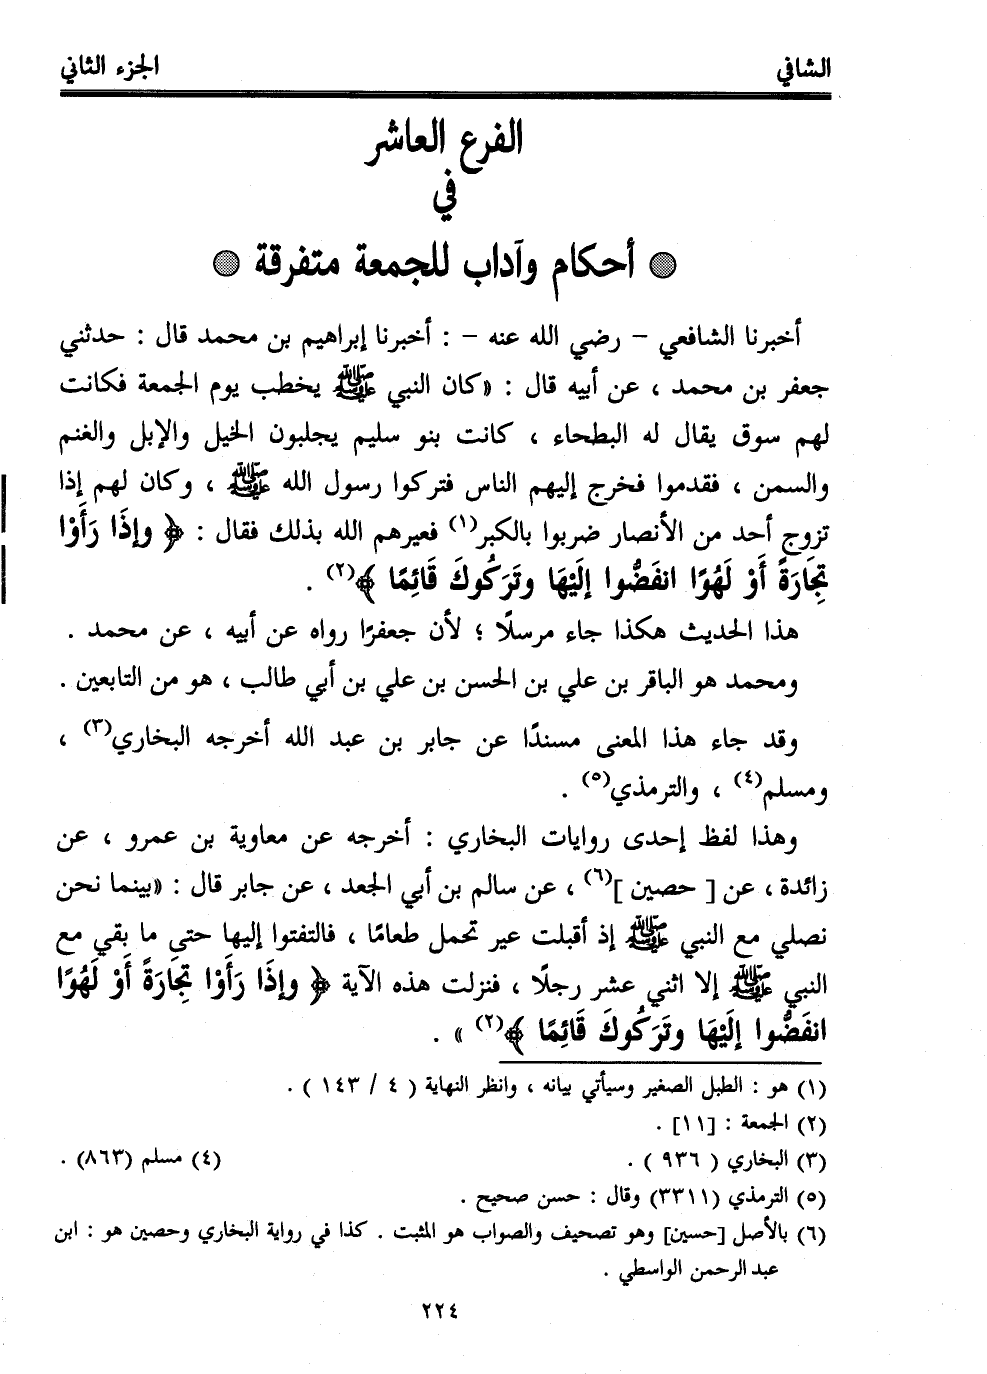 الشافي الجزء الثاني
الفرع العاشر
في
أحكام وآداب للجمعة متفرقة
أخبرنا الشافعي – رضي الله عنه – : أخبرنا إبراهيم بن محمد قال : حدثني
جعفر بن محمد ، عن أبيه قال : «كان النبي ﷺ يخطب يوم الجمعة فكانت
لهم سوق يقال له البطحاء ، كانت بنو سليم يجلبون الخيل والإبل والغنم
والسمن ، فقدموا فخرج إليهم الناس فتركوا رسول الله ﷺ ، وكان لهم إذا
تزوج أحد من الأنصار ضربوا بالكبر(١) فعيرهم الله بذلك فقال : ﴿ وإذَا رَأَوْا
تِجَارَةً أَوْ لَهْوًا انفَضُّوا إلَيْهَا وتَرَكُوكَ قَائِمًا ﴾(٢) .
هذا الحديث هكذا جاء مرسلًا ؛ لأن جعفرًا رواه عن أبيه ، عن محمد .
ومحمد هو الباقر بن علي بن الحسن بن علي بن أبي طالب ، هو من التابعين .
وقد جاء هذا المعنى مسندًا عن جابر بن عبد الله أخرجه البخاري(٣) ،
ومسلم(٤) ، والترمذي(٥) .
وهذا لفظ إحدى روايات البخاري : أخرجه عن معاوية بن عمرو ، عن
زائدة ، عن [ حصين ](٦) ، عن سالم بن أبي الجعد ، عن جابر قال : «بينما نحن
نصلي مع النبي ﷺ إذ أقبلت عير تحمل طعامًا ، فالتفتوا إليها حتى ما بقي مع
النبي ﷺ إلا اثني عشر رجلًا ، فنزلت هذه الآية ﴿ وإذَا رَأَوْا تِجَارَةً أَوْ لَهْوًا
انفَضُّوا إلَيْهَا وتَرَكُوكَ قَائِمًا ﴾(٢) » .
(١) هو : الطبل الصغير وسيأتي بيانه ، وانظر النهاية ( ٤ / ١٤٣ ) .
(٢) الجمعة : [١١] .
(٣) البخاري ( ٩٣٦ ) . (٤) مسلم (٨٦٣) .
(٥) الترمذي (٣٣١١) وقال : حسن صحيح .
(٦) بالأصل [حسين] وهو تصحيف والصواب هو المثبت . كذا في رواية البخاري وحصين هو : ابن
عبد الرحمن الواسطي .
٢٢٤